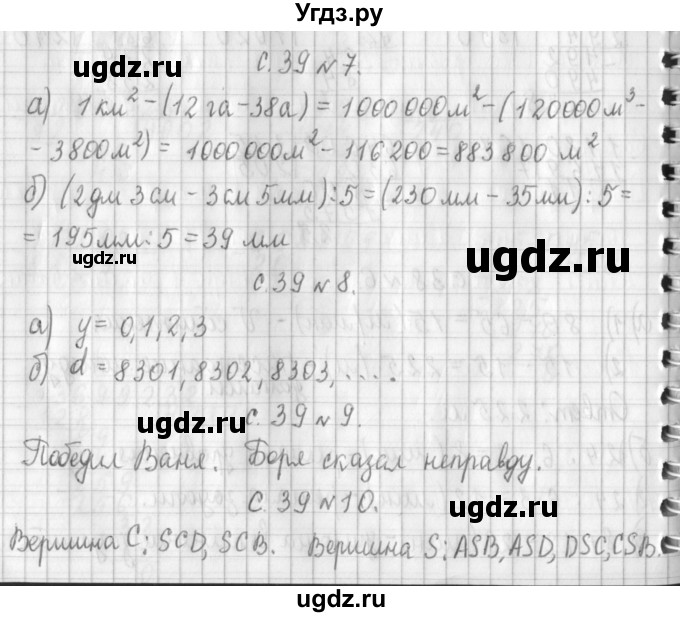 Угдз.ру
с.39 №7.
ugdz.ru
а) 1 км² - (12 га - 38 а) = 1000 000 м² - (120000 м³ -
- 3800 м²) = 1000 000 м² - 116 200 = 883 800 м²
б) (2 дм 3 см - 3 см 5 мм) : 5 = (230 мм - 35 мм) : 5 =
= 195 мм : 5 = 39 мм
ugdz.ru
ugdz.ru
с.39 №8.
а) y = 0, 1, 2, 3
б) d = 8301, 8302, 8303, ....
ugdz.ru
с.39 №9.
ugdz.ru
Победил Ваня. Боря сказал неправду.
с.39 №10.
ugdz.ru
ugdz.ru
Вершина С: SCD, SCB. Вершина S: ASB, ASD, DSC, CSB.
ugdz.ru